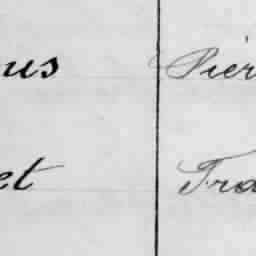 ous Pier
et Fra